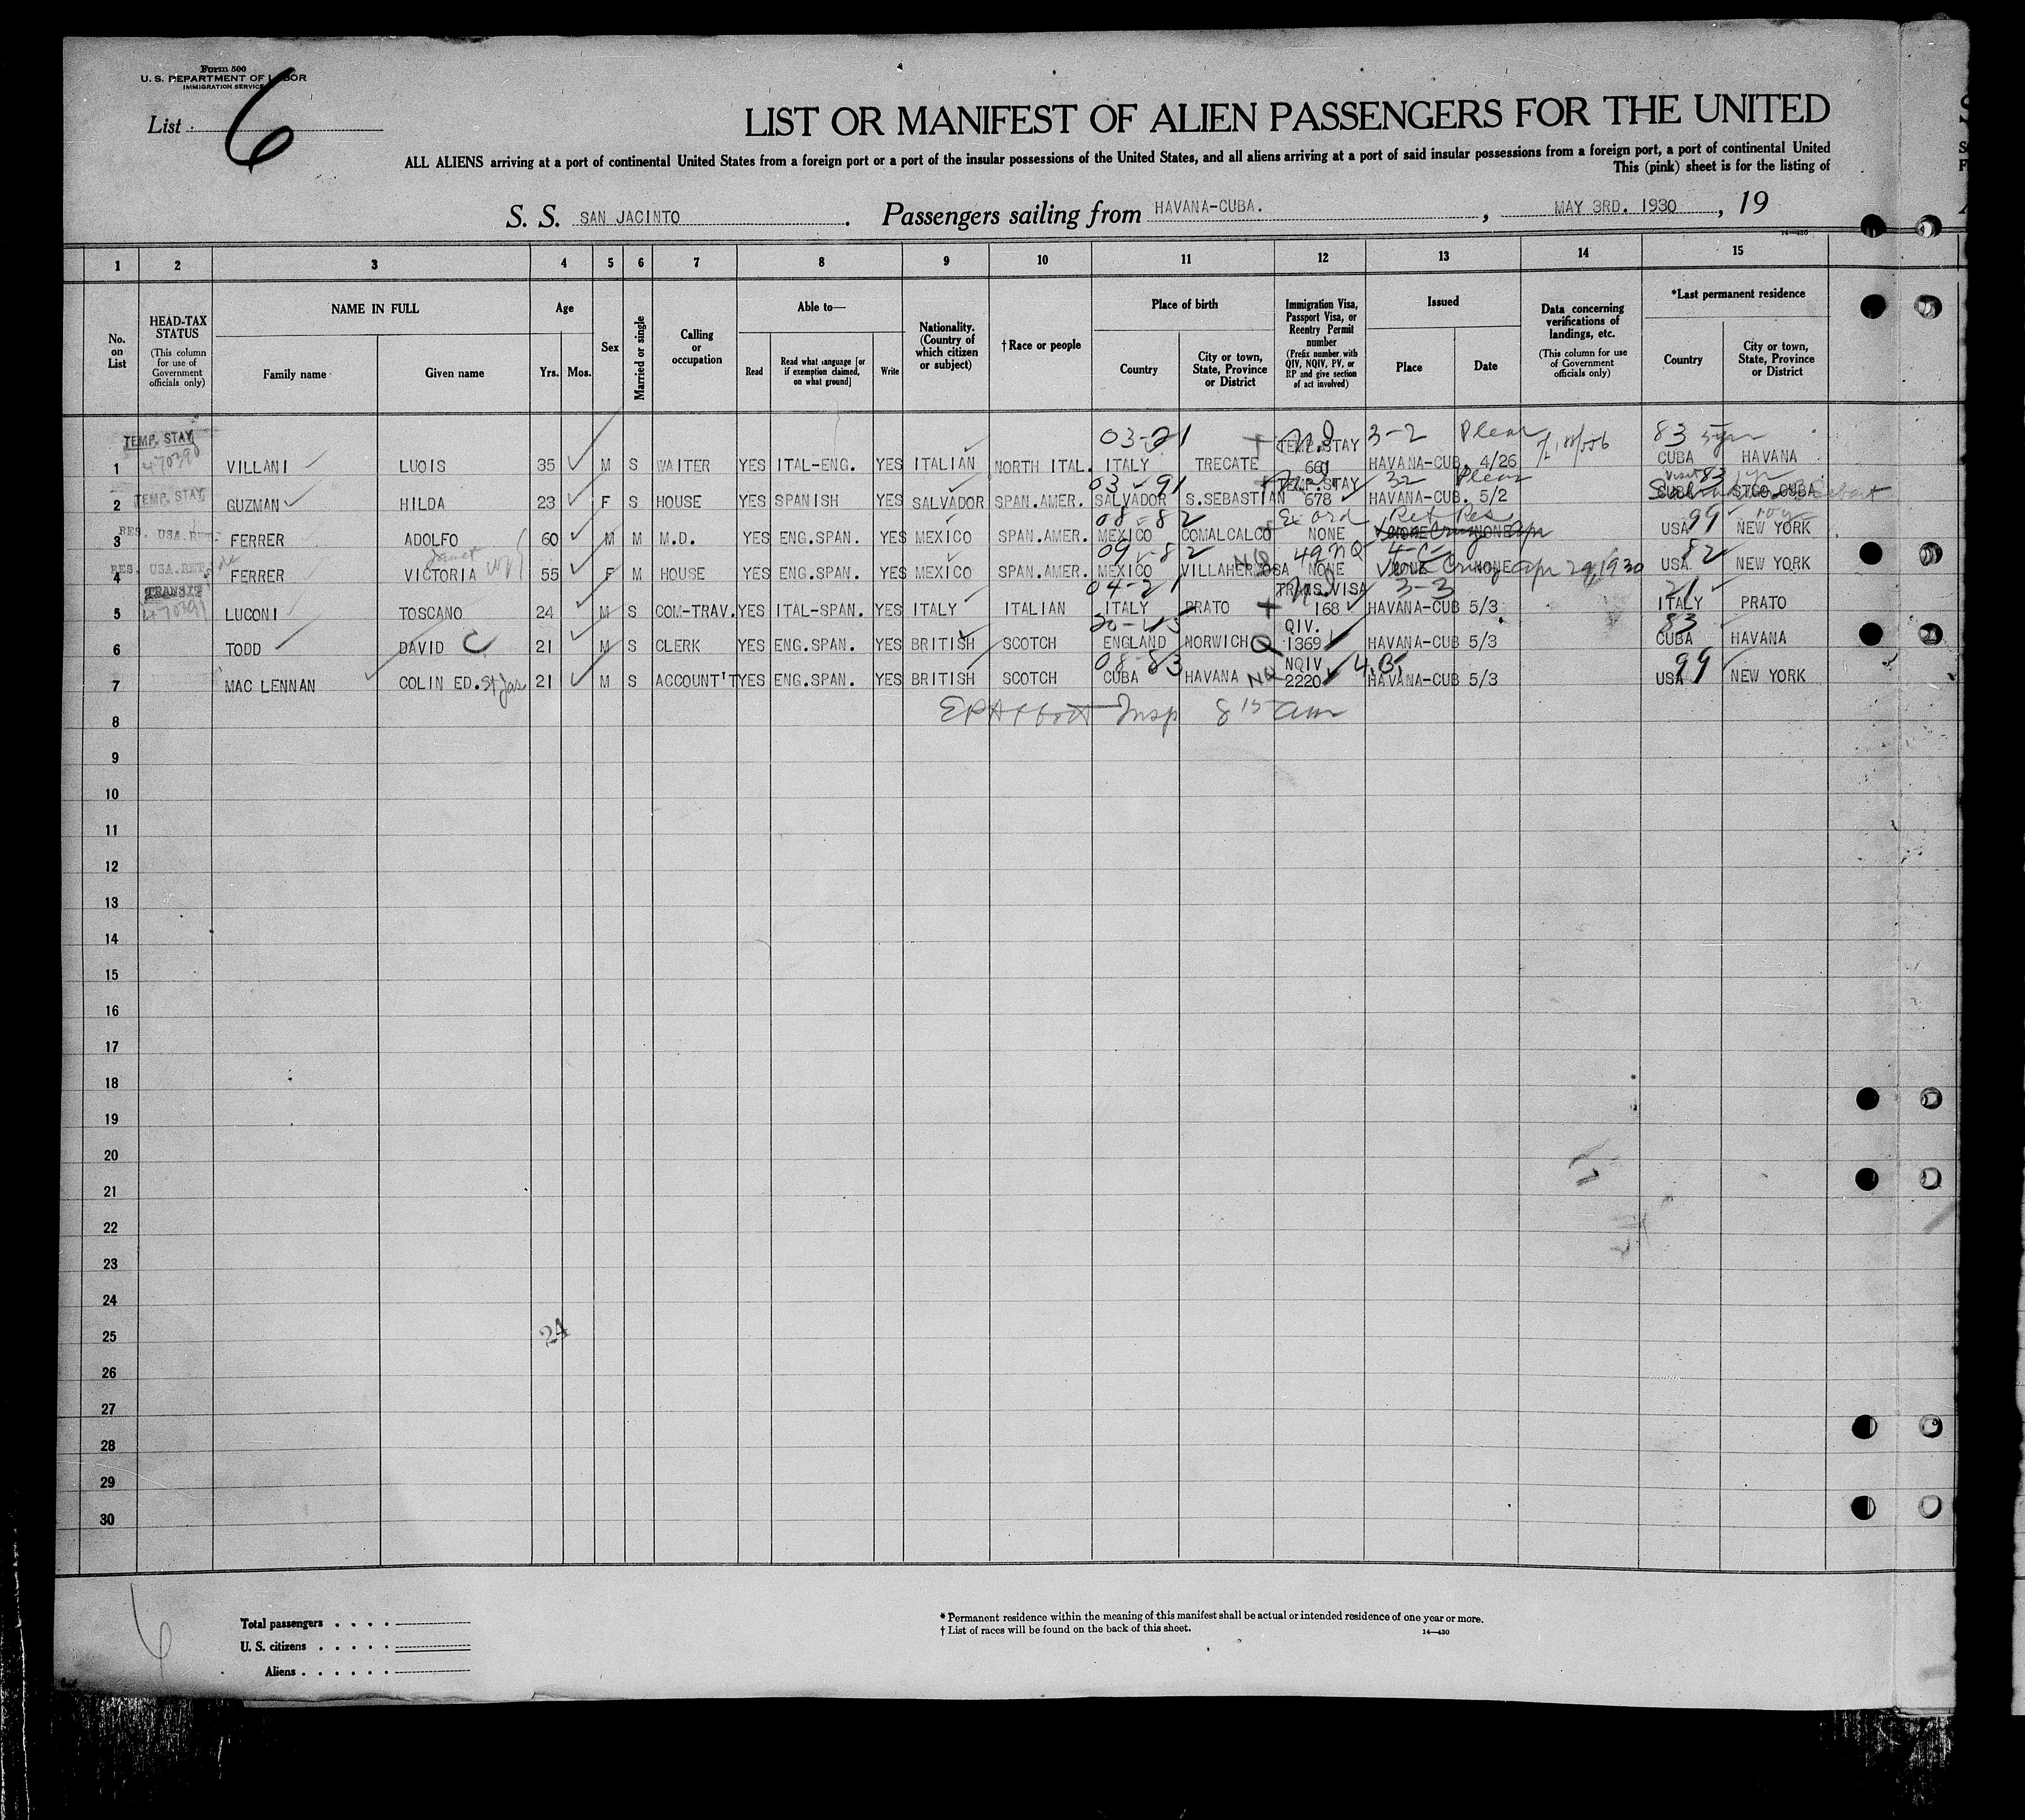 Form 500
U. S. DEPARTMENT OF LABOR
IMMIGRATION SERVICE
List 6
LIST OR MANIFEST OF ALIEN PASSENGERS FOR THE UNITED
ALL ALIENS arriving at a port of continental United States from a foreign port or a port of the insular possessions of the United States, and all aliens arriving at a port of said insular possessions from a foreign port, a port of continental United
This (pink) sheet is for the listing of
S. S. SAN JACINTO. Passengers sailing from HAVANA-CUBA., MAY 3RD. 1930, 19
14-430
1 2 3 4 5 6 7 8 9 10 11 12 13 14 15
No. on List
HEAD-TAX STATUS (This column for use of Government officials only)
NAME IN FULL
Family name Given name
Age
Yrs. Mos.
Sex
Married or single
Calling or occupation
Able to—
Read Read what language [or if exemption claimed, on what ground] Write
Nationality. (Country of which citizen or subject)
† Race or people
Place of birth
Country City or town, State, Province or District
Immigration Visa, Passport Visa, or Reentry Permit number (Prefix number with QIV, NQIV, PV, or RP and give section of act involved)
Issued
Place Date
Data concerning verifications of landings, etc. (This column for use of Government officials only)
*Last permanent residence
Country City or town, State, Province or District
TEMP. STAY 03-21 TEMP.STAY 3-2 83
1 470390 VILLANI LUOIS 35 M S WAITER YES ITAL-ENG. YES ITALIAN NORTH ITAL. ITALY TRECATE 661 HAVANA-CUB. 4/26 CUBA HAVANA
TEMP. STAY 03 91 TEMP.STAY 32 83
2 GUZMAN HILDA 23 F S HOUSE YES SPANISH YES SALVADOR SPAN.AMER. SALVADOR S.SEBASTIAN 678 HAVANA-CUB. 5/2 CUBA STGO.CUBA
RES. USA.RET. 08-82 Ret Res 99 10 yr
3 FERRER ADOLFO 60 M M M.D. YES ENG.SPAN. YES MEXICO SPAN.AMER. MEXICO COMALCALCO NONE NONE NONE USA NEW YORK
RES. USA.RET. de Janet 09-82 NQ 49 NQ 4-C 82
4 FERRER VICTORIA 55 F M HOUSE YES ENG.SPAN. YES MEXICO SPAN.AMER. MEXICO VILLAHERMOSA NONE NONE NONE Apr 29, 1930 USA NEW YORK
TRANSIT 04-21 TRANS.VISA 3-3 21
5 470391 LUCONI TOSCANO 24 M S COM-TRAV. YES ITAL-SPAN. YES ITALY ITALIAN ITALY PRATO 168 HAVANA-CUB 5/3 ITALY PRATO
QIV. 83
6 TODD DAVID C 21 M S CLERK YES ENG.SPAN. YES BRITISH SCOTCH ENGLAND NORWICH Q 1369 HAVANA-CUB 5/3 CUBA HAVANA
08-83 NQIV 99
7 MAC LENNAN COLIN ED. St Jas 21 M S ACCOUNT'T YES ENG.SPAN. YES BRITISH SCOTCH CUBA HAVANA NQ 2220 HAVANA-CUB 5/3 USA NEW YORK
8 Insp 8 15 am
9
10
11
12
13
14
15
16
17
18
19
20
21
22
23
24
25 24
26
27
28
29
30
6
Total passengers
U. S. citizens
Aliens
* Permanent residence within the meaning of this manifest shall be actual or intended residence of one year or more.
† List of races will be found on the back of this sheet. 14—430